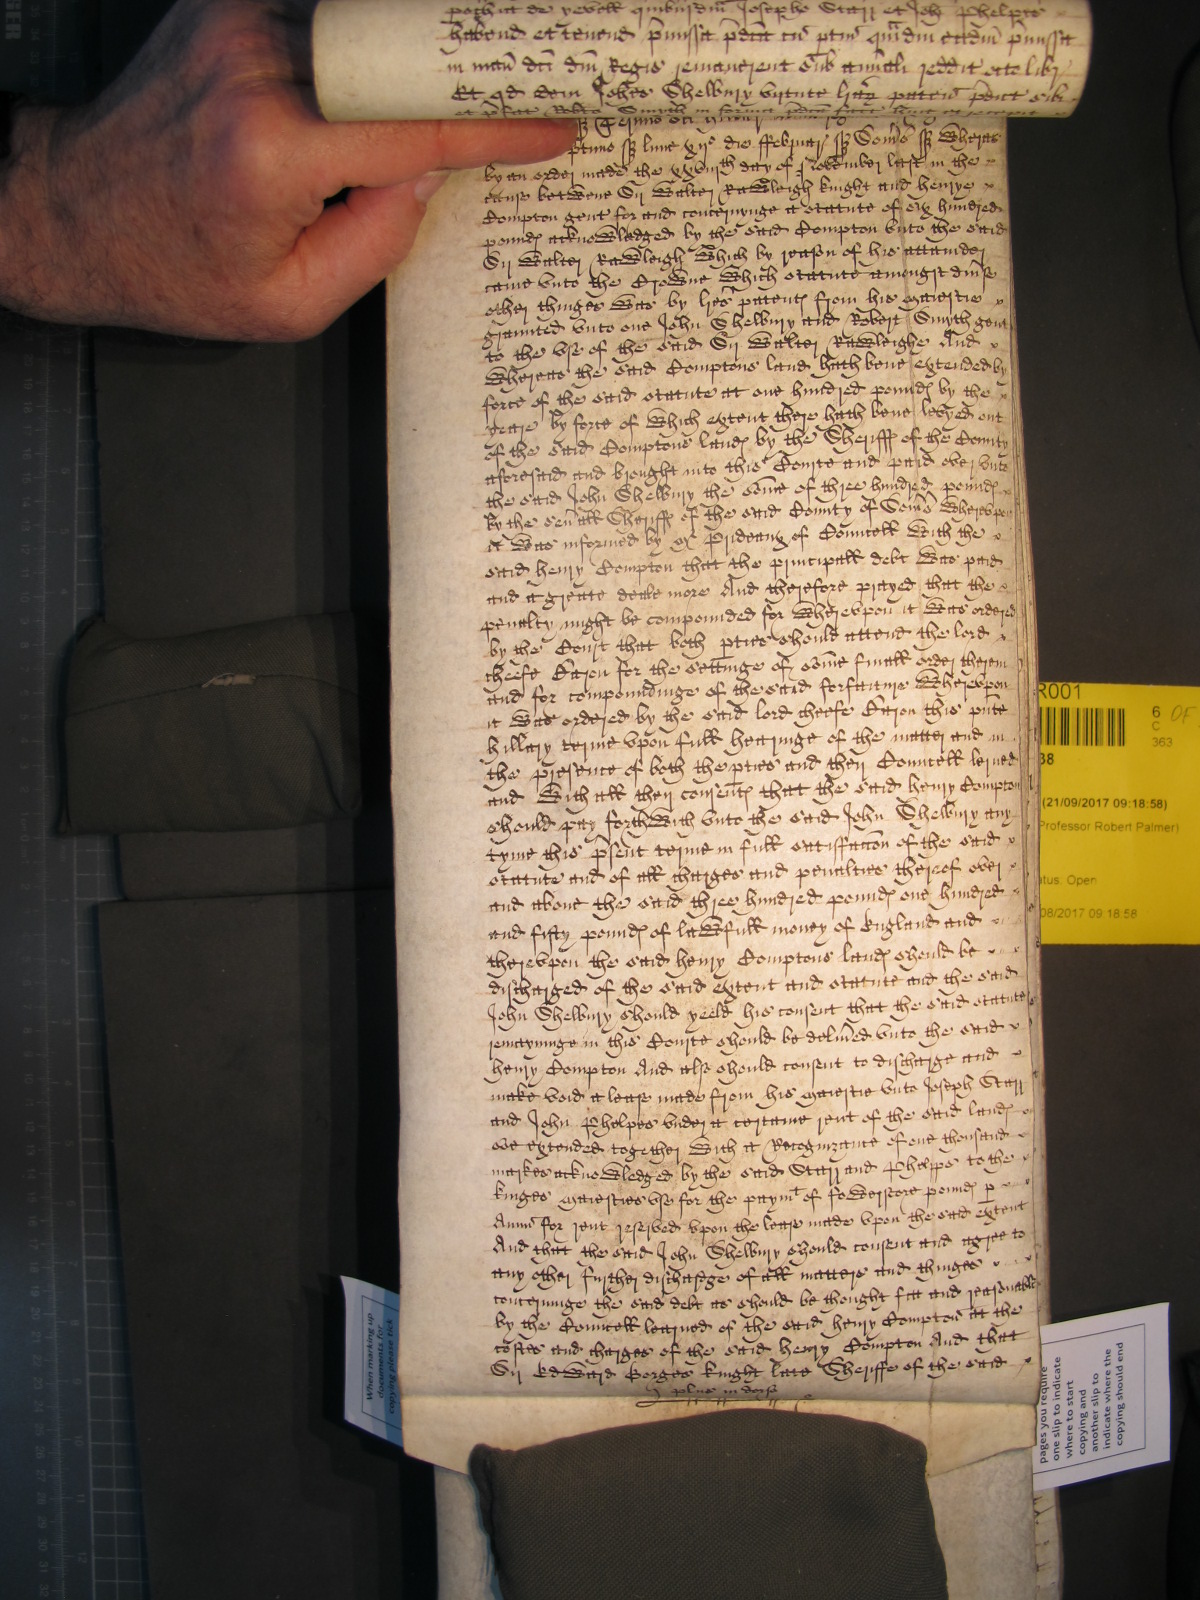 habend et tenend
in manu dci dni Regis remanerent sub annuali reddit octo libr
Et qd dem Johes Shelbury virtute patent pdict sub
die ffebruar Som Wheras
by an order made the xxviijth day of November last in the
cause betwene Sir Walter Rawleigh knight and Henrye
Compton gent for and concernynge a statute of six hundred
pound acknowledged by the said Compton vnto the said
Sir Walter Rawleigh Which by reason of his attainder
came vnto the Crowne Which statute amongst diuse
other thinges Was by lres patent from his maiestie
graunted vnto one John Shelbury and Robert Smyth gent
to the vse of the said Sir Walter Rawleighe And
Whereas the said Comptons land hath bene extended by
force of the said statute at one hundred pound by the
yeare by force of Which extent there hath bene levyed out
of the said Comptons land by the Sheriff of the County
aforesaid and brought into this Courte and paid over vnto
the said John Shelbury the some of three hundred pound
by the seuall Sheriffe of the said County of Som Wherevpon
it Was informed by mr Prideaux of Councell With the
said henry Compton that the principall debt Was paid
and a greate deale more And therefore prayed that the
penalty might be compounded for Wherevpon it Was ordered
by the Court that both pties should attend the lord
cheefe Baron for the settinge of some finall order therein
and for compoundinge of the said forfaiture Wherevpon
it Was ordered by the said lord cheefe Baron this pnte
hillary terme vpon full hearinge of the matter and in
the presence of both the pties and their Councell lerned
and With all their consent that the said henry Compton
should pay forthWith vnto the said John Shelbury any
tyme this psent terme in full satisfaccon of the said
statute and of all charges and penalties thereof over
and aboue the said three hundred pound one hundred
and fifty pound of lawfull money of England and
therevpon the said henry Comptons land should be
discharged of the said extent and statute and the said
John Shelbury should yeeld his consent that the said statute
remayninge in this Courte should be deliued vnto the said
henry Compton And also should consent to discharge and
make void a lease made from his maiestie vnto Joseph Starr
and John Phelpes vnder a certaine rent of the said land
soe extended together With a Recognizance of one thousand
markes acknowledged by the said Starr and Phelpps to the
kinges maiesties vse for the paymt of fowerscore pound p
Annu for rent reserved vpon the lease made vpon the said extent
And that the said John Shelbury should consent and agree to
any other further discharge of all matters and thinges
concerninge the said debt as should be thought fitt and reasonable
by the Councell learned of the said henry Compton at the
costes and charges of the said henry Compton And that
Sir Edward Gorges knight late Sheriffe of the said
plus in dorso
R001
6
C
363
OF
38
(21/09/2017 09:18:58)
Professor Robert Palmer)
tus: Open
08/2017 09:18:58
When marking up
documents for
copying please tick
pages you require
one slip to indicate
where to start
copying and
another slip to
indicate where the
copying should end